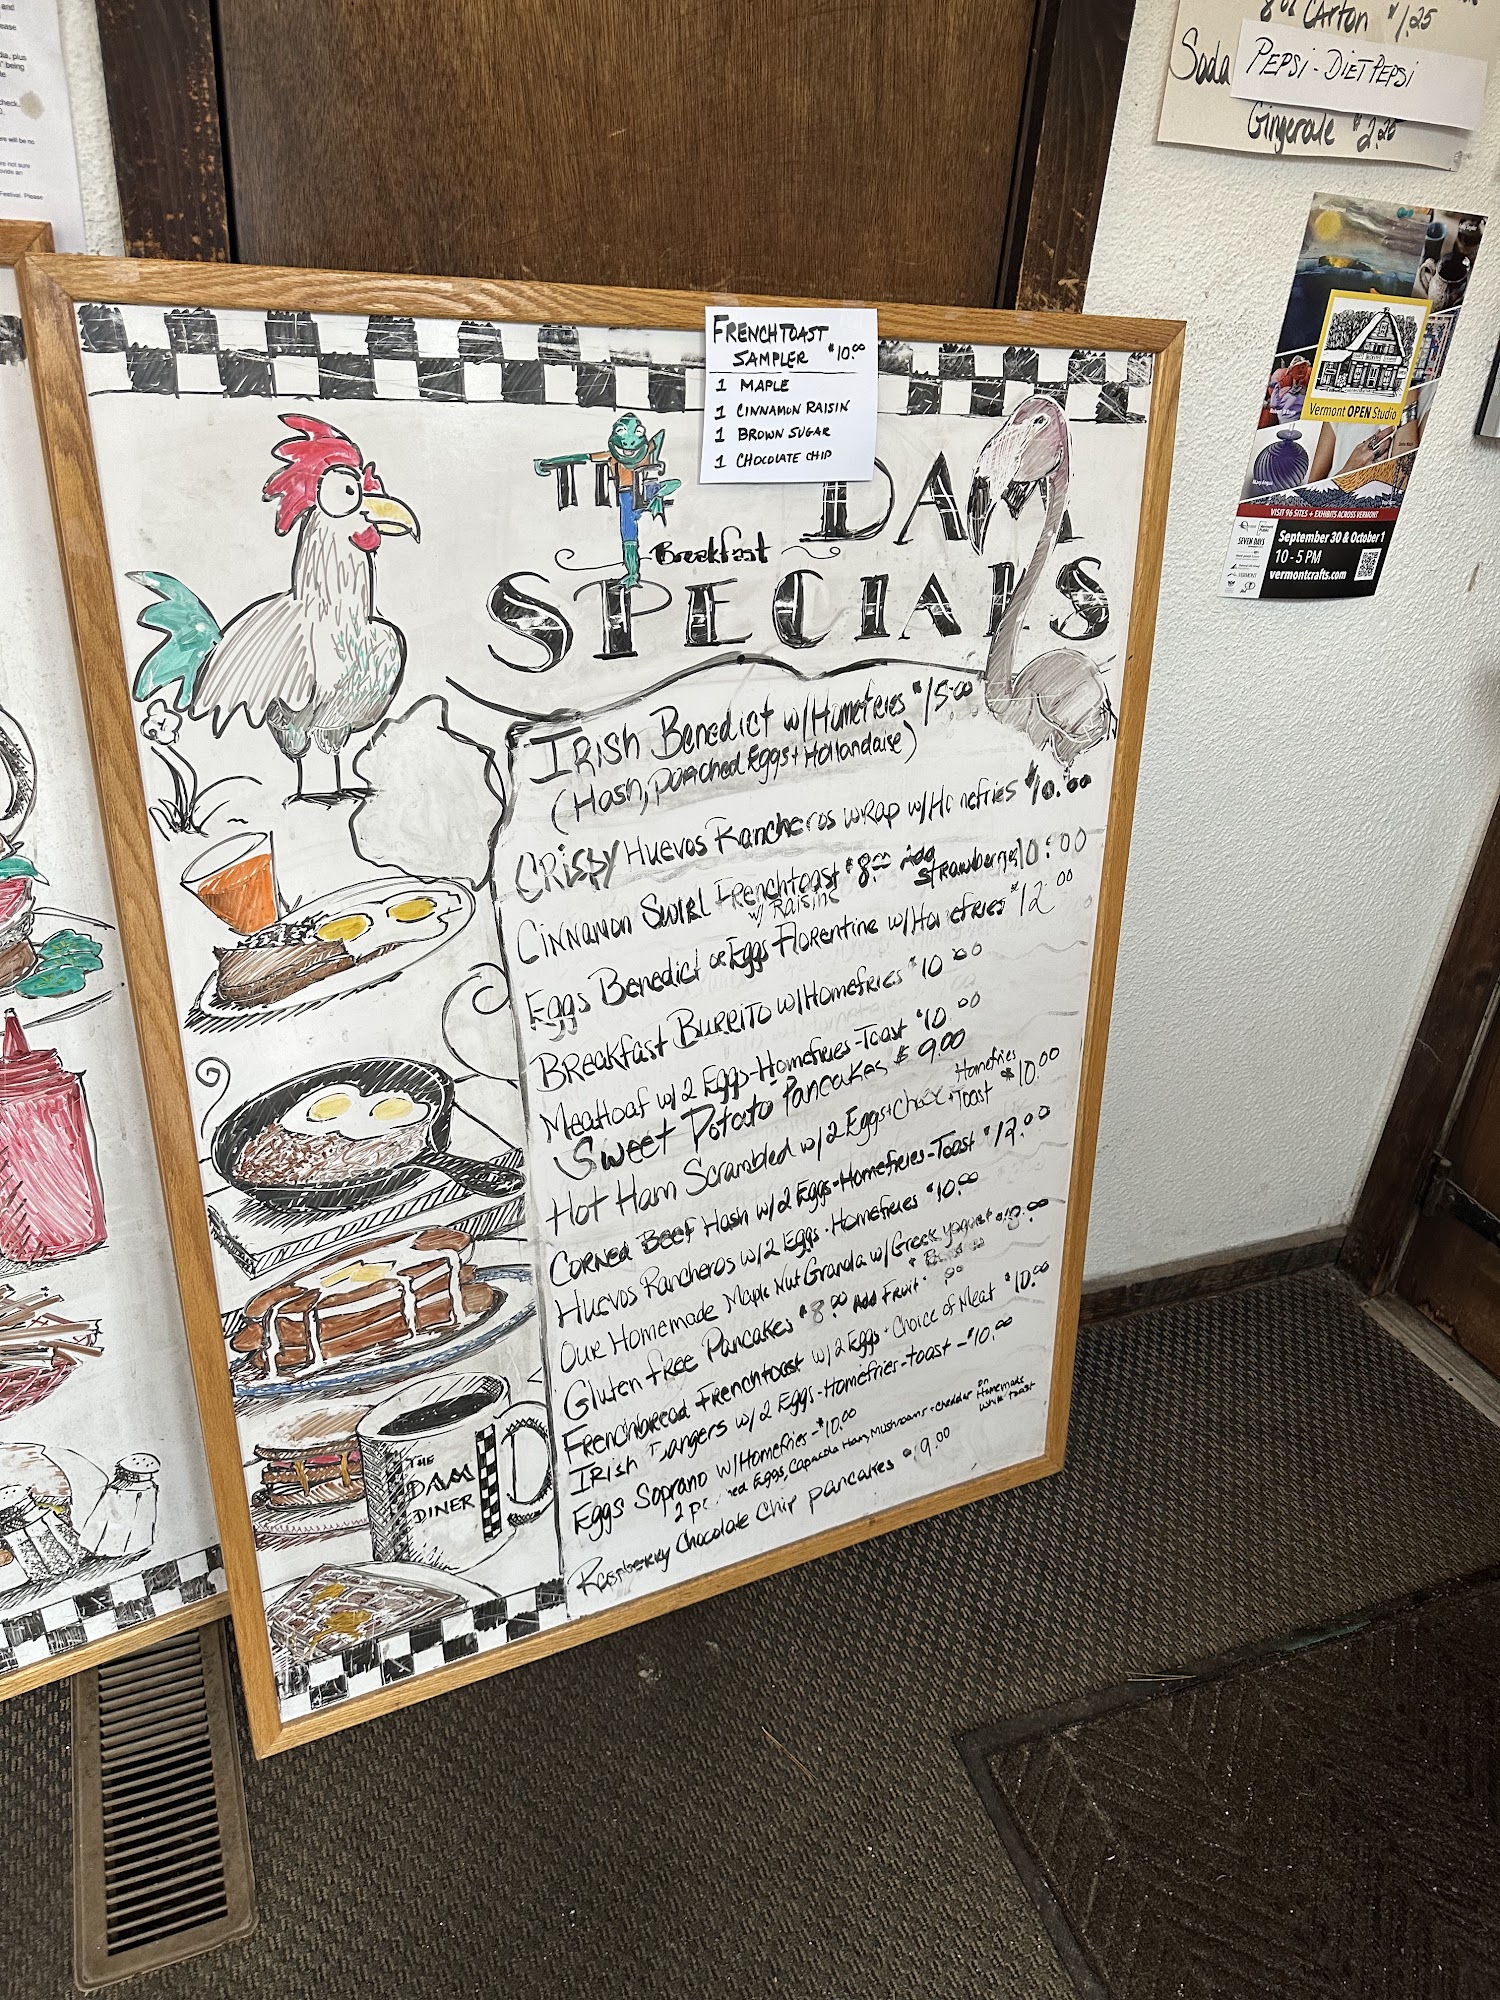 and
ease
dia, plus
" being
te
check.
0.
ere will be no
re not sure
ovide an
Festival. Please
8oz CARTON $1.25
Soda PEPSI - DIET PEPSI
Gingerale $2.25
FRENCHTOAST
SAMPLER $10.00
1 MAPLE
1 CINNAMON RAISIN
1 BROWN SUGAR
1 CHOCOLATE CHIP
THE DAM
Breakfast
SPECIALS
IRISH Benedict w/Homefries $15.00
(Hash, poached Eggs + Hollandaise)
CRISPY Huevos Rancheros wrap w/Homefries $10.00
Cinnamon Swirl Frenchtoast $8.00 Add Strawberries 10.00
w/ Raisins
Eggs Benedict or Eggs Florentine w/Homefries $12.00
Breakfast Burrito w/Homefries $10.00
Meatloaf w/2 Eggs-Homefries-Toast $10.00
Sweet Potato Pancakes $9.00
Hot Ham Scrambled w/2 Eggs + Chez + Homefries Toast $10.00
Corned Beef Hash w/2 Eggs-Homefries-Toast $12.00
Huevos Rancheros w/2 Eggs-Homefries $10.00
Our Homemade Maple Nut Granola w/Greek yogurt $10.00
Gluten free Pancakes $8.00 Add Fruit
Frenchbread Frenchtoast w/2 Eggs + Choice of Meat $10.00
IRISH Bangers w/2 Eggs-Homefries-toast-$10.00
Eggs Soprano w/Homefries-$10.00
2 poached Eggs, Capacola Ham, Mushrooms + cheddar on Homemade White toast
Raspberry Chocolate Chip pancakes $9.00
THE
DAM
DINER
Vermont OPEN Studio
VISIT 96 SITES + EXHIBITS ACROSS VERMONT
SEVEN DAYS
September 30 & October 1
10 - 5 PM
vermontcrafts.com